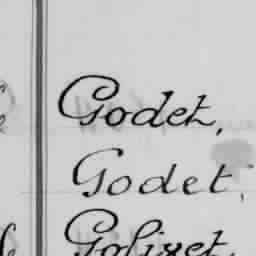 Godet,
Godet,
Golivet